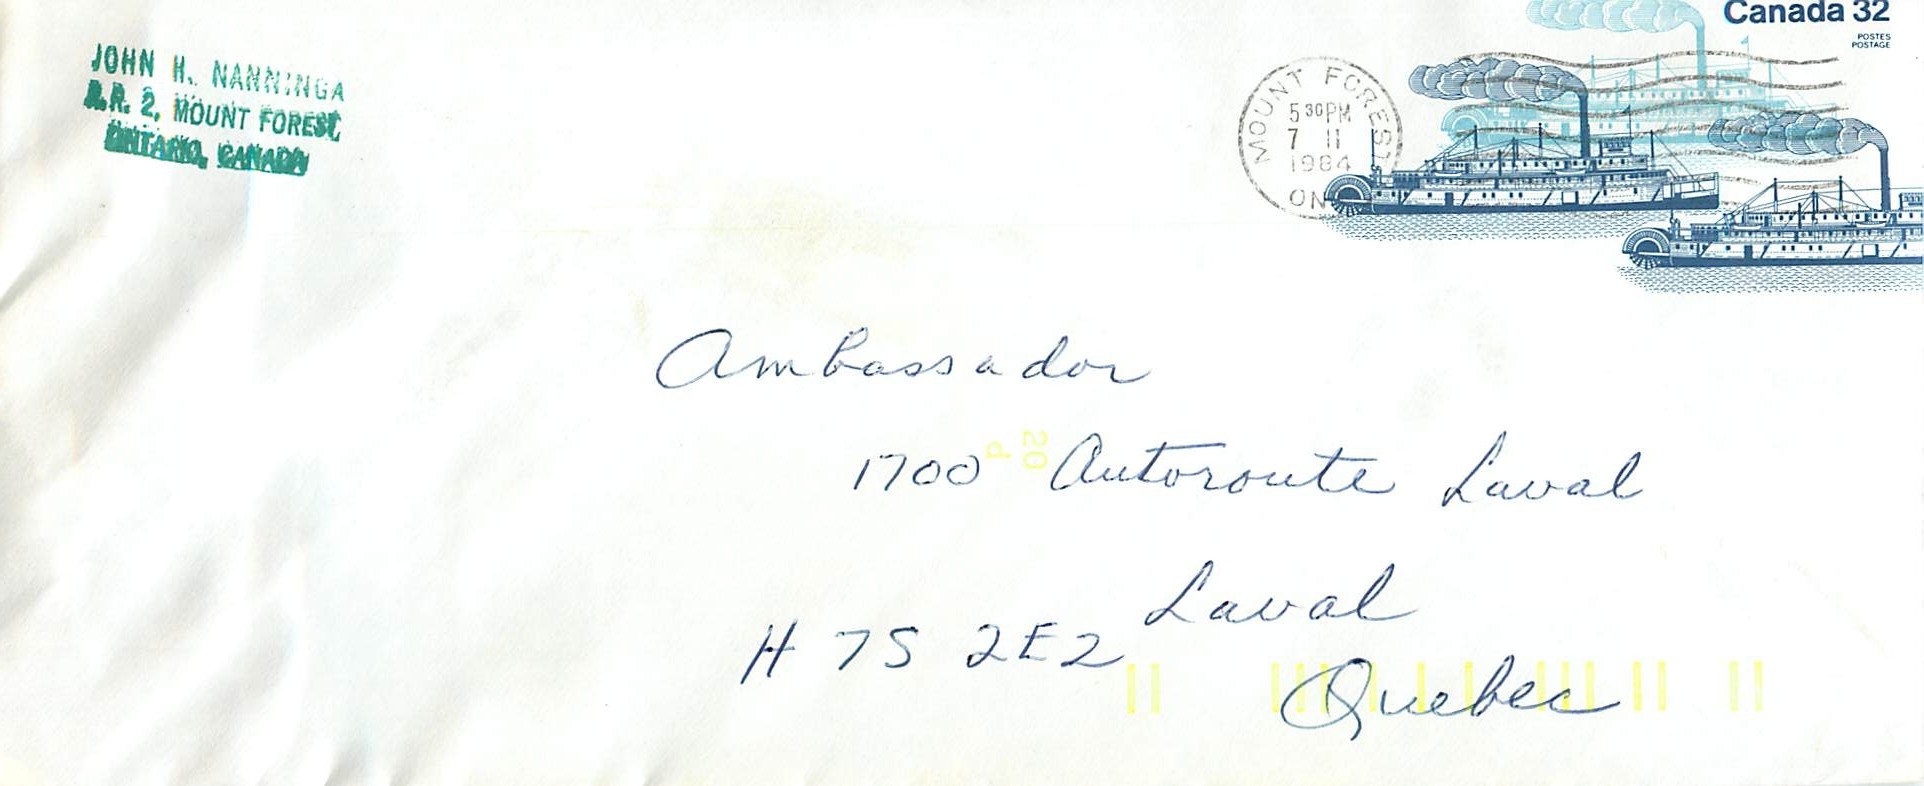 JOHN H. NANNINGA
R.R. 2, MOUNT FOREST,
ONTARIO, CANADA
Canada 32
POSTES
POSTAGE
MOUNT FOREST
5 30 PM
7 11
1984
ON
Ambassador
20
d
1700 Autoroute Laval
Laval
H 7S 2E2
Quebec